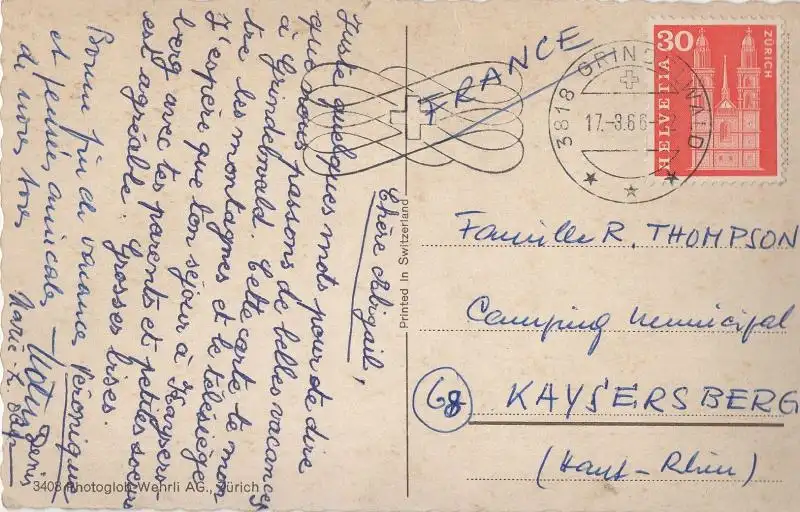 Chère Abigail,
Juste quelques mots pour te dire
que nous passons de belles vacances
à Grindelwald. Cette carte te mon-
tre les montagnes et le télésiège
J'espère que ton séjour à Kaysers-
berg avec tes parents et petites soeurs
est agréable. Grosses bises.
Véronique
Bonne fin de vacances
et pensées amicales
de nous tous
Denis
FRANCE
3818 GRINDELWALD
17.-8.66-12
HELVETIA 30
ZÜRICH
Famille R. THOMPSON
Camping municipal
68 KAYSERSBERG
(Haut-Rhin)
Printed in Switzerland
3408 Photoglob-Wehrli AG., Zürich